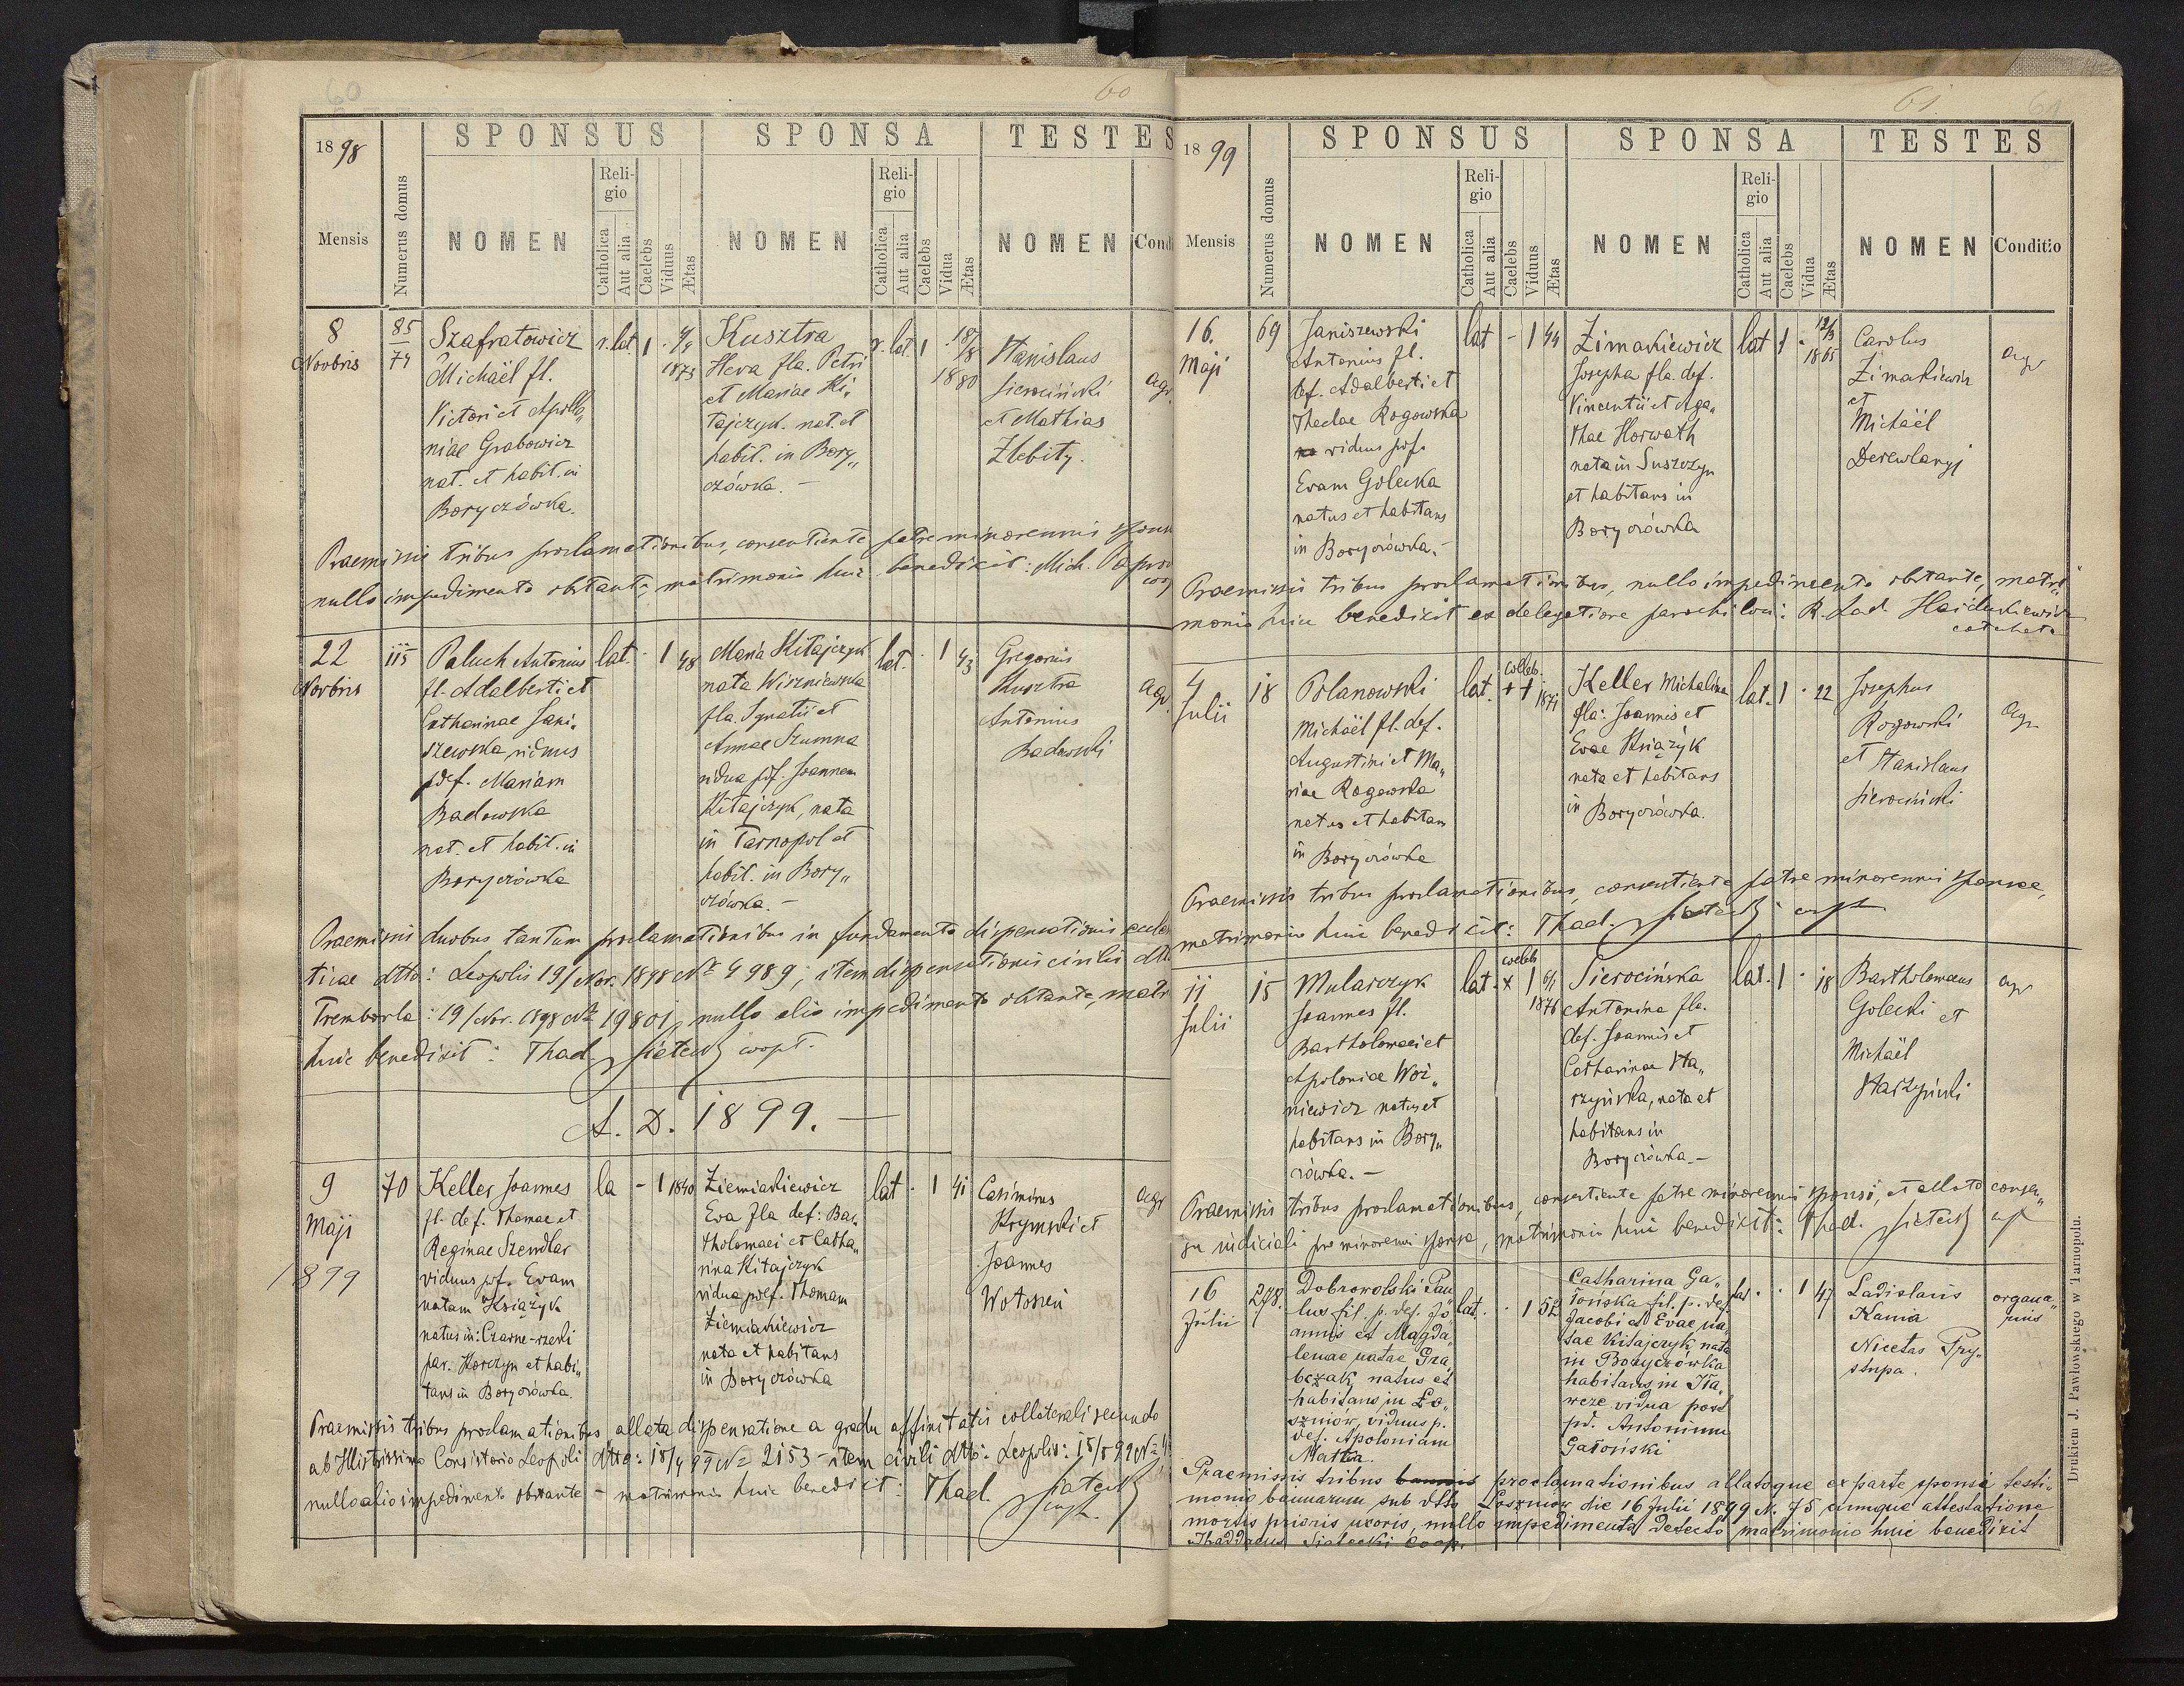 60
60
1898
SPONSUS
SPONSA
TESTES
Mensis
Numerus domus
NOMEN
Religio
Catholica
Aut alia
Caelebs
Viduus
Ætas
NOMEN
Religio
Catholica
Aut alia
Caelebs
Vidua
Ætas
NOMEN
Condi
8
Novbris
85
74
Szafratowicz
Michaël fl.
Victori et Apollo„
niae Grabowicz
nat. et habit. in
Boryczówka.
r. lat
1
1873
Kusztra
Heva fla. Petri
et Mariae Ki„
tajczyk. nat. et
habit. in Bory„
czówka. —
r. lat.
1
18/8
1880
Stanislaus
Sierociński
et Mathias
Zlebity.
agr.
Praemissis tribus proclamationibus, consentiente patre minorennis spons
nullo impedimento obstante, matrimonio huic benedixit: Mich.
22
Novbris
115
Paluch Antonius
fl. Adalberti et
Catharinae Jani„
szewska viduus
p. def. Mariam
Badowska
nat. et habit. in
Boryczówka
lat.
1
48
Maria Kitajczyk
nata Wiszniewska
fla. Ignatii et
Annae Szumna
vidua p. def. Joannem
Kitajczyk, nata
in Tarnopol et
habit. in Bory„
czówka. —
lat.
1
43
Gregorius
Kusztra
Antonius
Badowski
agr.
Praemissis duobus tantum proclamationibus in fundamento dispensationis eccle
ticae dtto: Leopolis 19/Nov. 1898 № 4989; item dispensationis civilis dtt
Trembowla: 19/Nov. 1898 № 19801, nullo alio impedimento obstante, matr
huic benedixit: Thad. Siatecki coopt.
A. D. 1899. —
9
Maji
1899
70
Keller Joannes
fl. def. Thomae et
Reginae Szendlar
viduus p. def. Evam
natam Książyk
natus in: Czarne-rzeki
par. Korczyn et habi„
tans in Boryczówka.
la
-
1
1840
Ziemiakiewicz
Eva fla def: Bar„
tholomaei et Catha„
rina Kitajczyk
vidua p. def. Thomam
Ziemiakiewicz
nata et habitans
in Boryczówka
lat
1
41
Casimirus
Krymski et
Joannes
Wołoszń
agr
Praemissis tribus proclamationibus, allata dispensatione a gradu affinitatis collaterali secundo
ab Illustrissimo Consistorio Leopoli dtto: 18/4 99 № 2153 – item civili dtto: Leopolis: 15/5 99 №
nullo alio impedimento obstante – matrimonio huic benedixit: Thad. Siatecki
coopt.
61
1899
SPONSUS
SPONSA
TESTES
Mensis
Numerus domus
NOMEN
Religio
Catholica
Aut alia
Caelebs
Viduus
Ætas
NOMEN
Religio
Catholica
Aut alia
Caelebs
Vidua
Ætas
NOMEN
Conditio
16.
Maji
69
Janiszewski
Antonius fl.
def. Adalberti et
Theclae Rogowska
viduus p. def.
Evam Golecka
natus et habitans
in Boryczówka. –
lat
-
1
44
Zimakiewicz
Josepha fla. def.
Vincentii et Aga„
thae Horwath
nata in Suszczyn
et habitans in
Boryczówka
lat
1
12/3
1865
Carolus
Zimakiewicz
et
Michaël
Derewlanyj
agr
Praemissis tribus proclamationibus, nullo impedimento obstante, matri„
monio huic benedixit ex delegatione parochi loci: R. Lad. Hajdukiewicz
catcheta
4
Julii
18
Polanowski
Michaël fl. def.
Augustini et Ma„
riae Rogowska
natus et habitans
in Boryczówka
lat.
coeleb.
++
1874
Keller Michalina
fla: Joannis et
Evae Książyk
nata et habitans
in Boryczówka.
lat.
1
22
Josephus
Rogowski
et Stanislaus
Sierociński
agr
Praemissis tribus proclamationibus, consentiente patre minorennis sponsae,
matrimonio huic benedixit: Thad. Siatecki coopt.
11
Julii
15
Mularczyk
Joannes fl.
Bartholomaei et
Apoloniae Woź„
niewicz natus et
habitans in Bory„
czówka. –
lat.
coeleb
x
1
6/1
1876
Sierocińska
Antonina fla.
def. Joannis et
Catharinae Sta„
rzyńska, nata et
habitans in
Boryczówka. –
lat.
1
18
Bartholomaeus
Golecki et
Michaël
Starzyński
agr
Praemissis tribus proclamationibus, consentiente patre minorennis sponsi, et allato consen„
su iudiciali pro minorenni sponsa, matrimonio huic benedixit: Thad. Siatecki coopt
16
Julii
278.
Dobrowolski Pau„
lus fil. p. def. Jo
annis et Magda
lenae natae Gra„
bczak, natus et
habitans in Ło„
szniów, viduus p.
def. Apoloniam
Matka.
lat.
1
52
Catharina Ga„
łońska fil. p. def.
Jacobi et Evae na„
tae Kitajczyk nata
in Boryczówka
habitans in Iła„
wcze vidua post
pd. Antonium
Gałoński
lat.
1
47
Ladislaus
Kania
Nicetas Pry„
stupa.
organa„
rius
Praemissis tribus bannis proclamationibus allatoque ex parte sponsi testi„
monio bannorum sub dtto Łoszniów die 16 Julii 1899 N. 75 cumque attestatione
mortis prioris uxoris, nullo impedimento detecto matrimonio huic benedixit
Thaddaeus Siatecki Coop.
Drukiem J. Pawłowskiego w Tarnopolu.